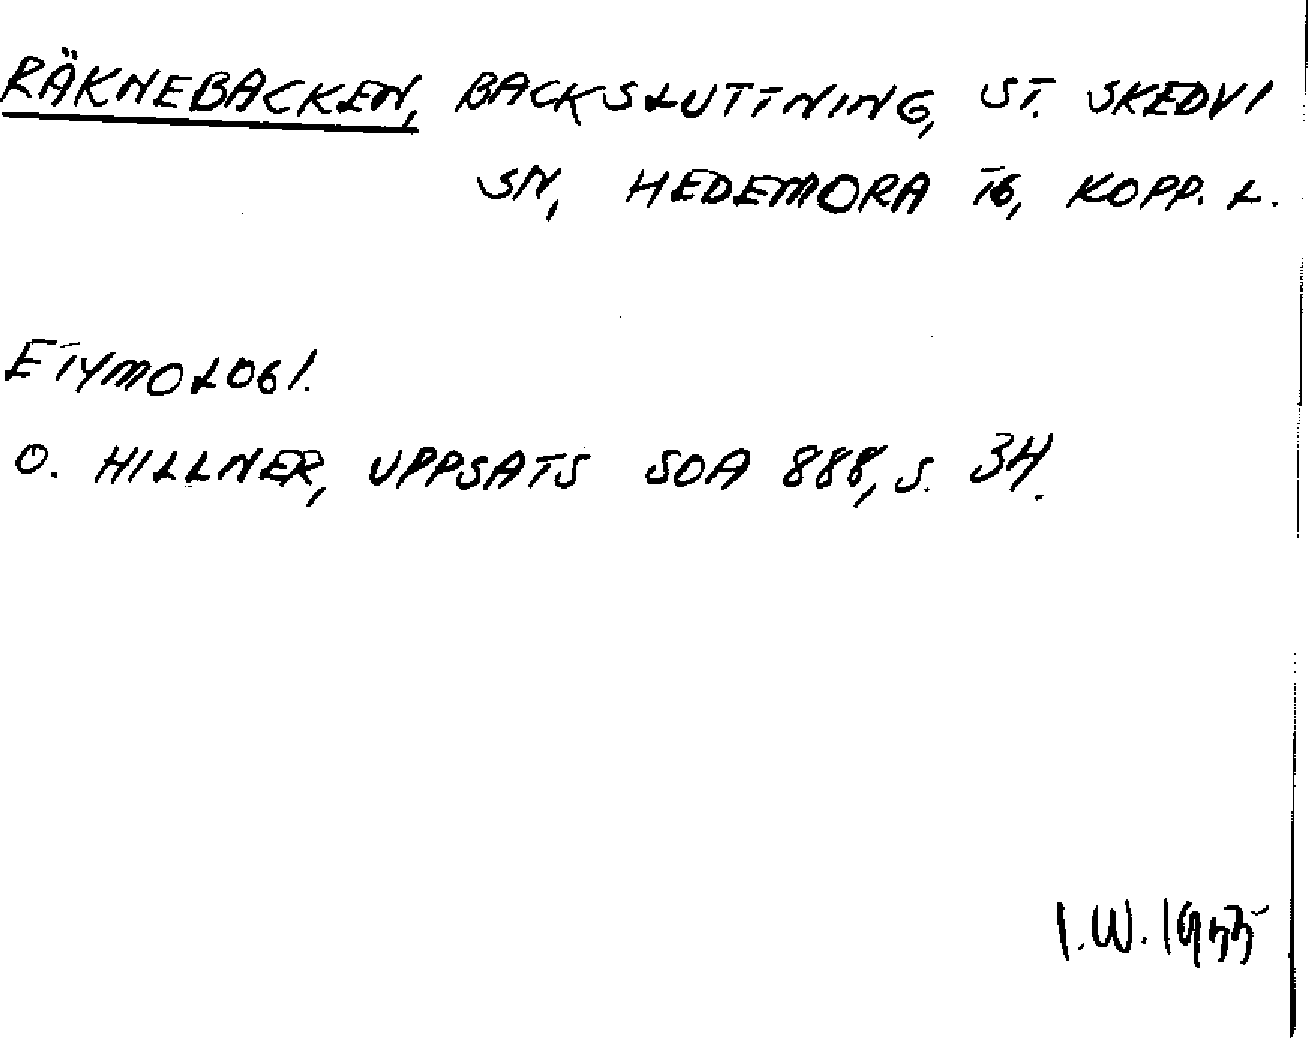 RÄKNEBACKEN, BACKSLUTTNING, ST. SKEDVI
SN, HEDEMORA TG, KOPP. L.
ETYMOLOGI.
O. HILLNER, UPPSATS SOA 888, S. 34.
I.W. 1955